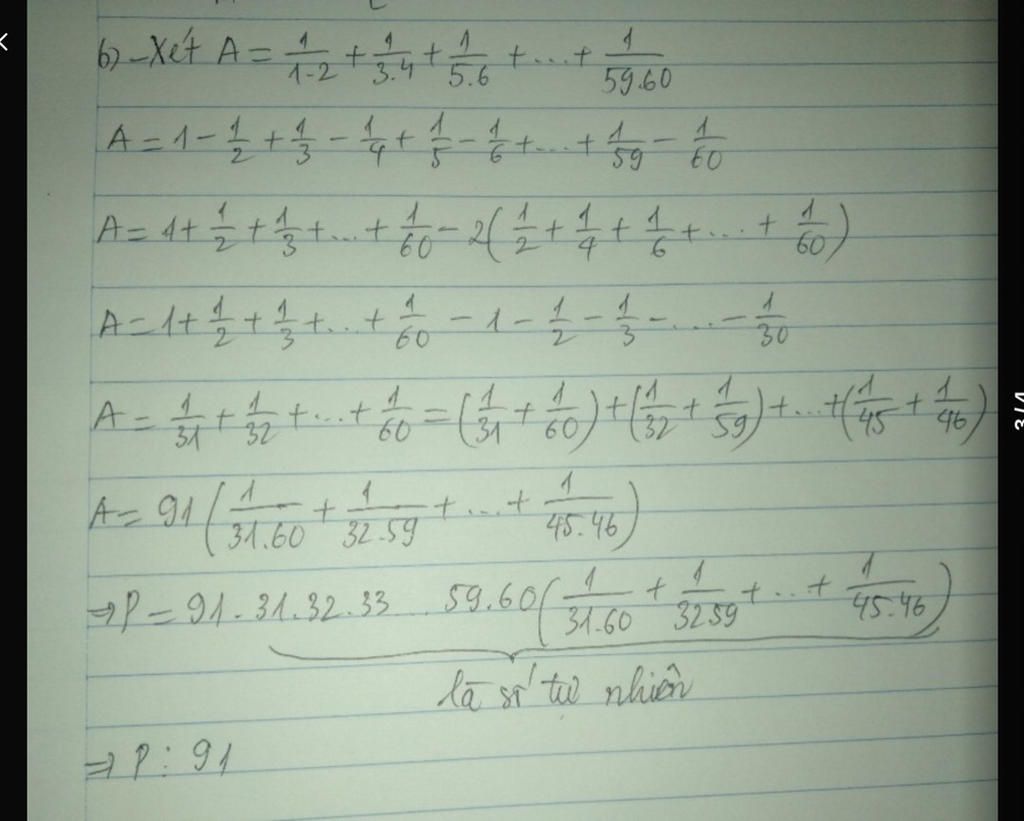 b) - Xét A = 1/1.2 + 1/3.4 + 1/5.6 + ... + 1/59.60
A = 1 - 1/2 + 1/3 - 1/4 + 1/5 - 1/6 + ... + 1/59 - 1/60
A = 1 + 1/2 + 1/3 + ... + 1/60 - 2(1/2 + 1/4 + 1/6 + ... + 1/60)
A = 1 + 1/2 + 1/3 + ... + 1/60 - 1 - 1/2 - 1/3 - ... - 1/30
A = 1/31 + 1/32 + ... + 1/60 = (1/31 + 1/60) + (1/32 + 1/59) + ... + (1/45 + 1/46)
A = 91(1/31.60 + 1/32.59 + ... + 1/45.46)
⇒ P = 91.31.32.33...59.60(1/31.60 + 1/3259 + ... + 1/45.46)
là số tự nhiên
⇒ P ⋮ 91
3/4